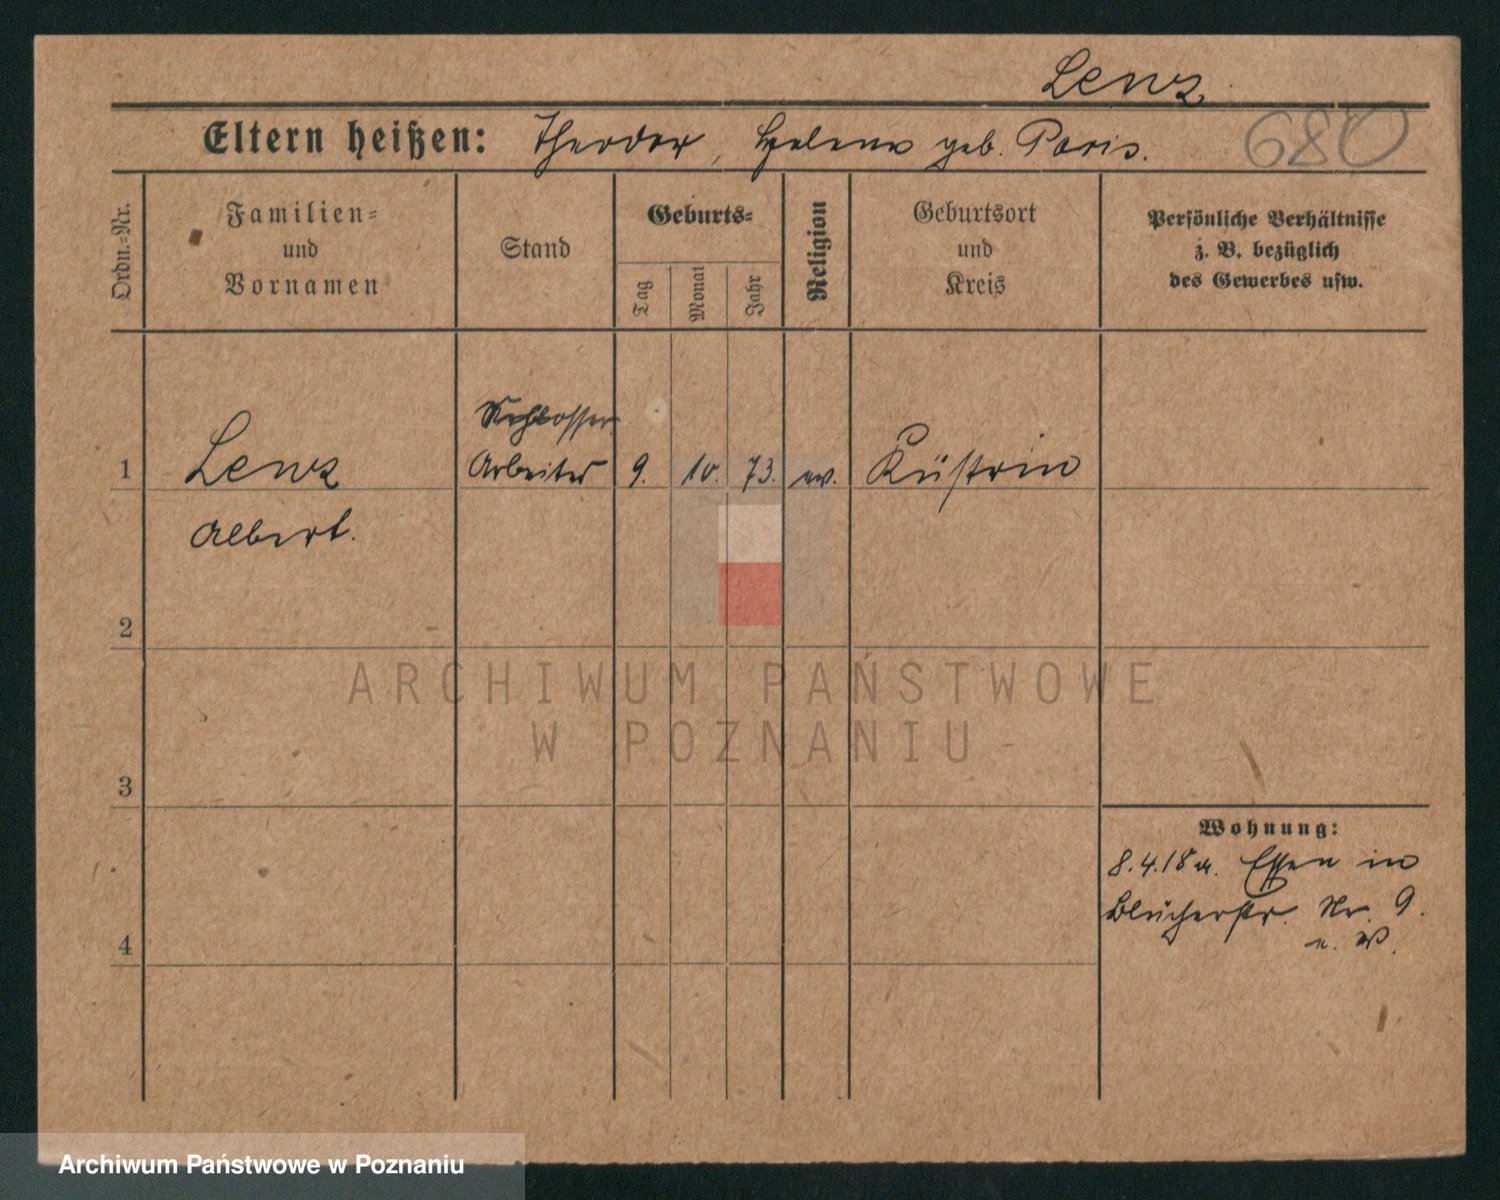 Lenz
Eltern heißen: Theodor, Helene geb. Paris.
680
Ordn.-Nr.
Familien-
und
Vornamen
Stand
Geburts-
Tag
Monat
Jahr
Religion
Geburtsort
und
Kreis
Persönliche Verhältnisse
z. B. bezüglich
des Gewerbes usw.
Schlosser
1 Lenz Arbeiter 9. 10. 73. ev. Küstrin
Albert.
2
3
4
Wohnung:
8.4.18 a. Essen in
Blücherstr. Nr. 9.
n. W.
ARCHIWUM PAŃSTWOWE
W POZNANIU
Archiwum Państwowe w Poznaniu